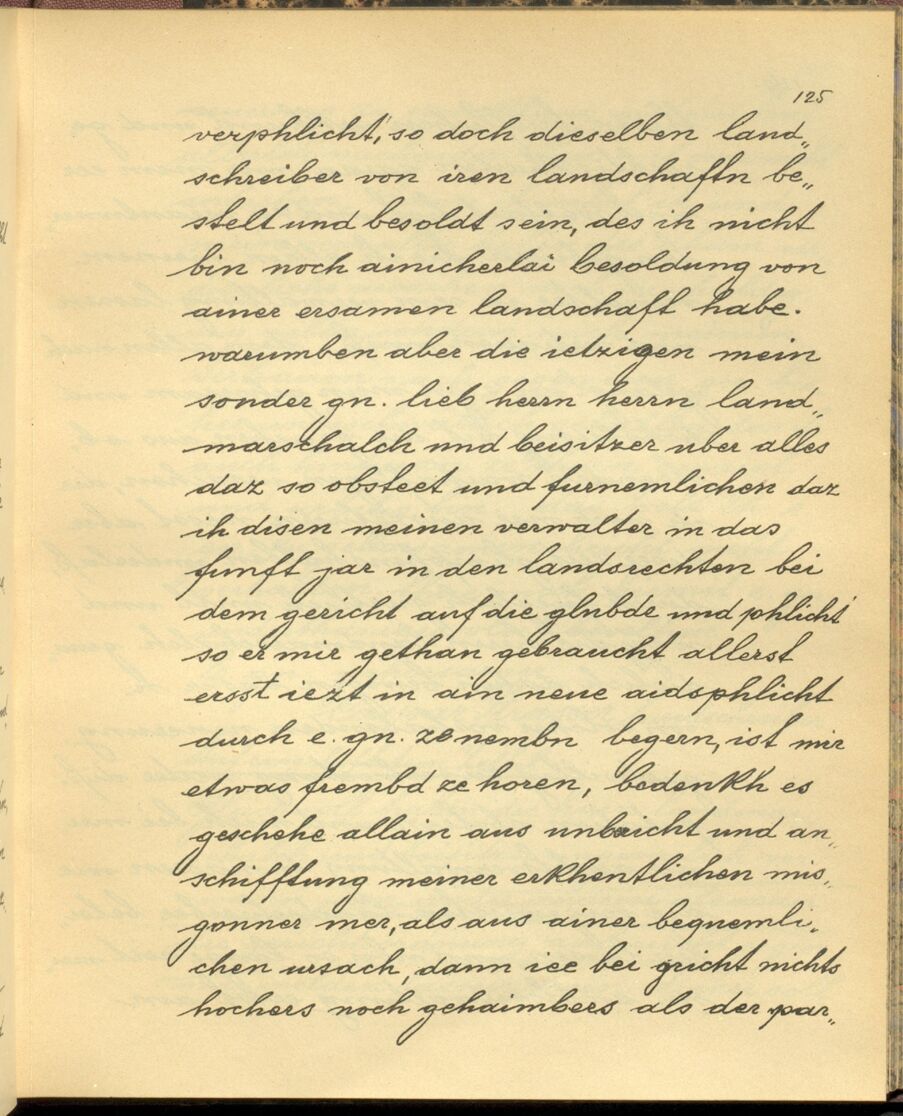 125
verphlicht, so doch dieselben land„
schreiber von iren landschaftn be„
stelt und besoldt sein, des ih nicht
bin noch ainicherlai besoldung von
ainer ersamen landschaft habe.
warumben aber die ietzigen mein
sonder gn. lieb herrn herrn land„
marschalch und beisitzer uber alles
daz so obsteet und furnemlichen daz
ih disen meinen verwalter in das
funft jar in den landsrechten bei
dem gericht auf die glubde und phlicht
so er mir gethan gebraucht allerst
ersst iezt in ain neue aidsphlicht
durch e. gn. ze nembn begern, ist mir
etwas frembd ze horen, bedenkh es
geschehe allain aus unbricht und an„
schifftung meiner erkhentlichen mis„
gonner mer, als aus ainer bequemli„
chen ursach, dann iee bei gricht nichts
hochers noch gehaimbers als der par„